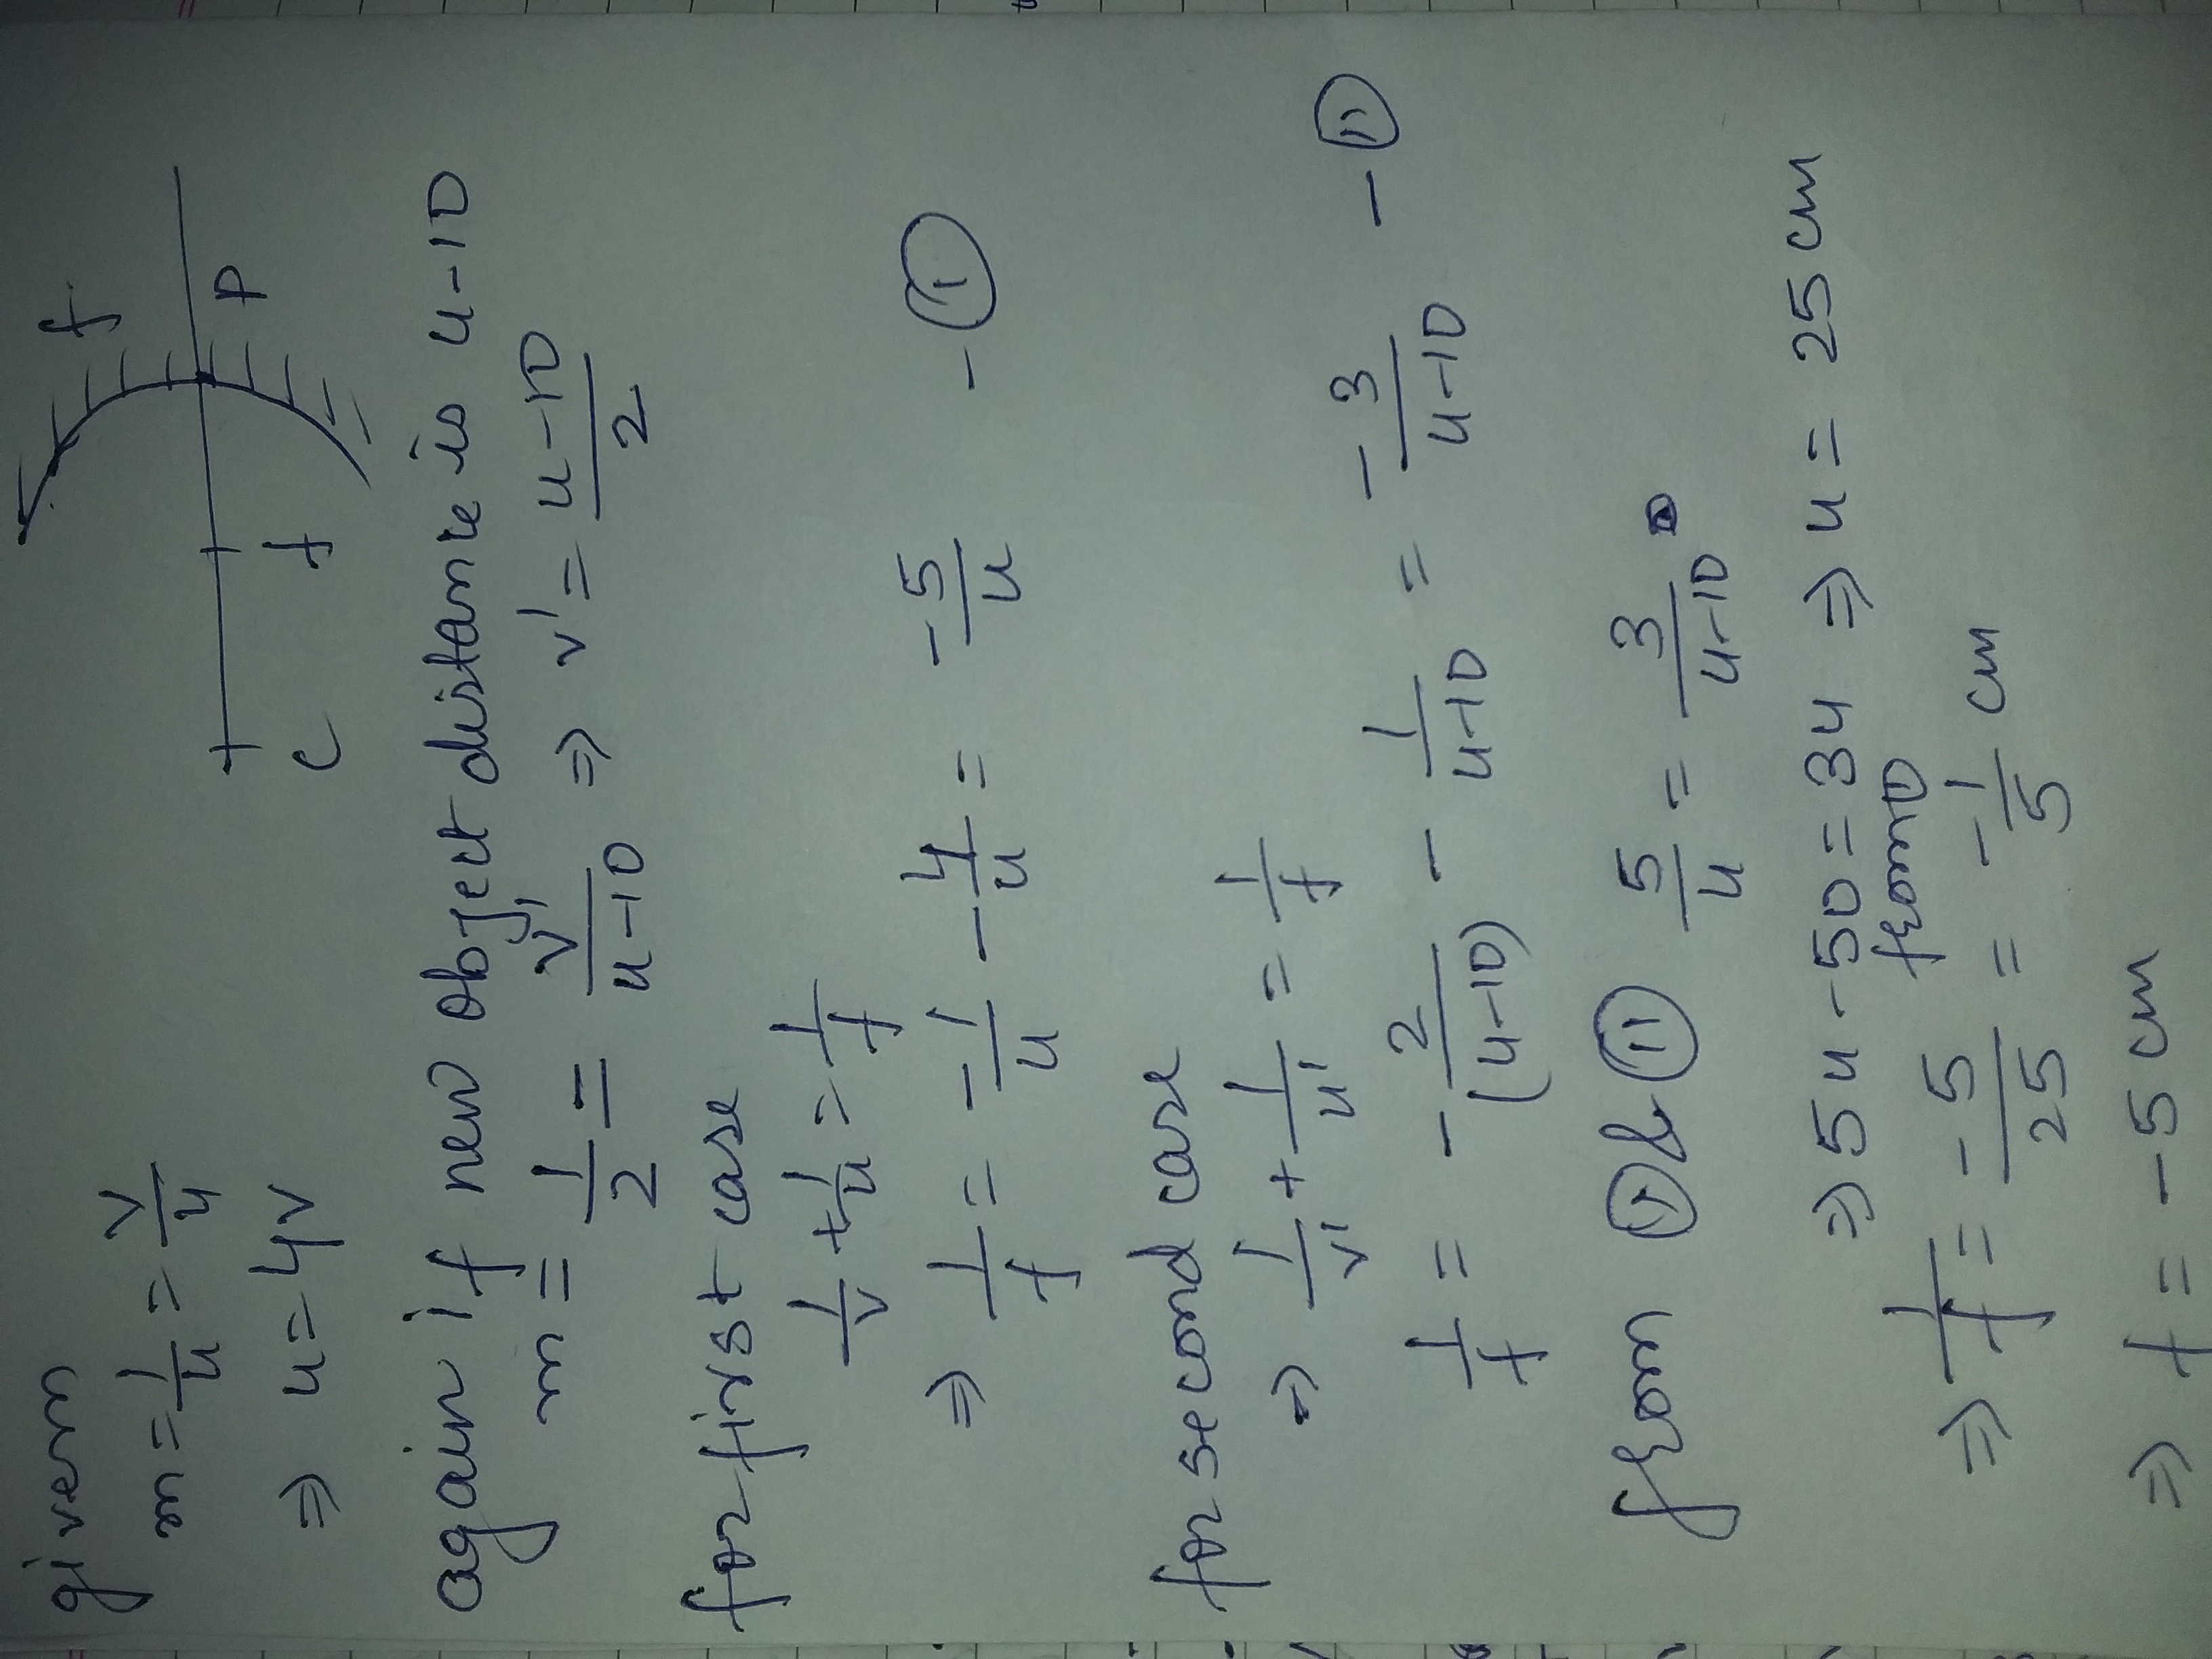 given
m = 1/4 = v/u
⇒ u = 4v
f
P
f
C
again if new object distance is u-10
m = 1/2 = v'/u-10 ⇒ v' = u-10/2
for first case
1/v + 1/u = 1/f
⇒ 1/f = -1/u - 4/u = -5/u - (i)
for second case
⇒ 1/v' + 1/u' = 1/f
1/f = -2/(u-10) - 1/u-10 = -3/u-10 - (ii)
from (i) & (ii) 5/u = 3/u-10
⇒ 5u - 50 = 3u ⇒ u = 25 cm
from (i)
⇒ 1/f = -5/25 = -1/5 cm
⇒ f = -5 cm